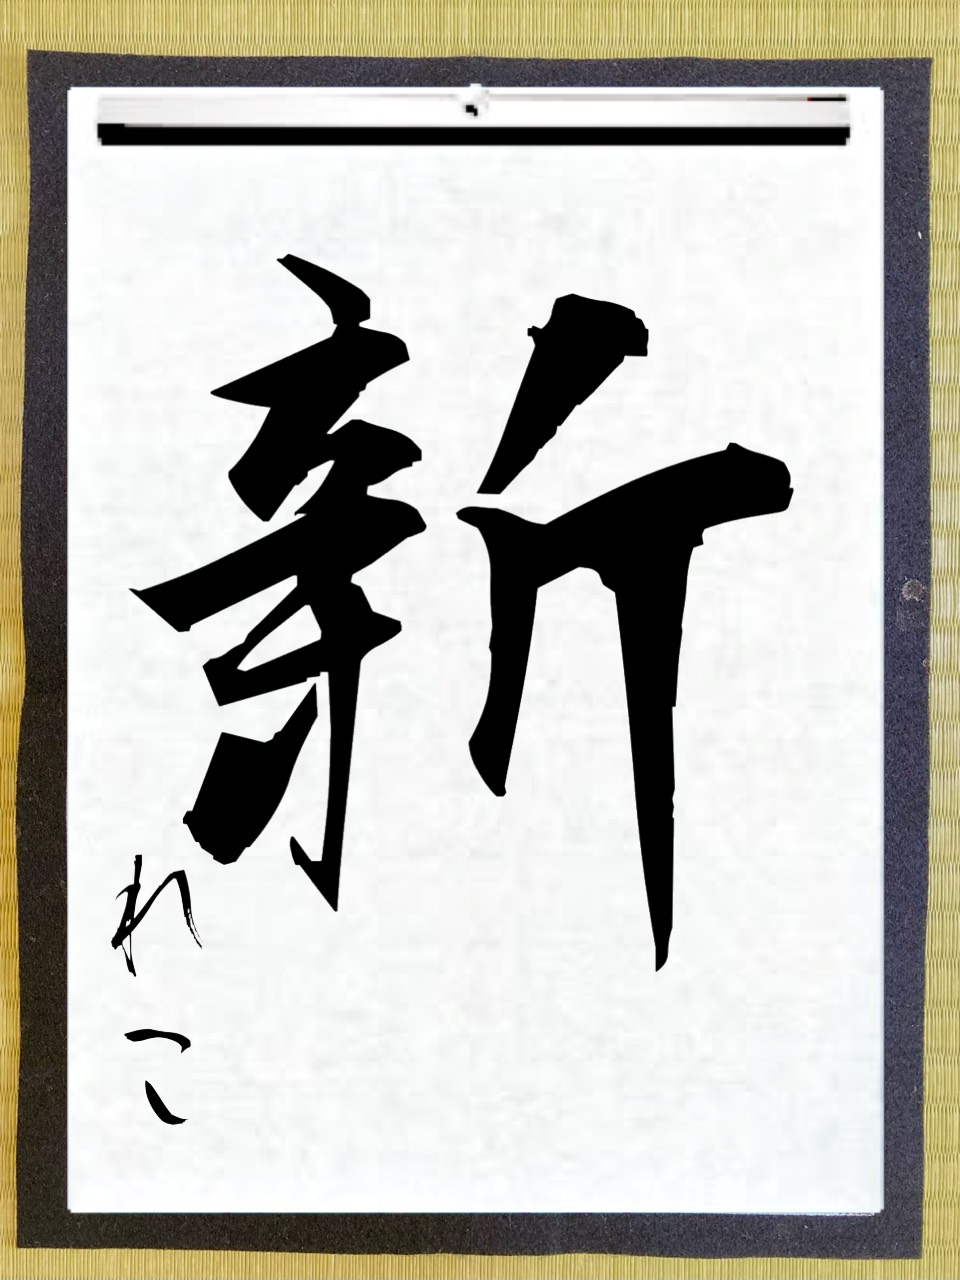 新
れこ